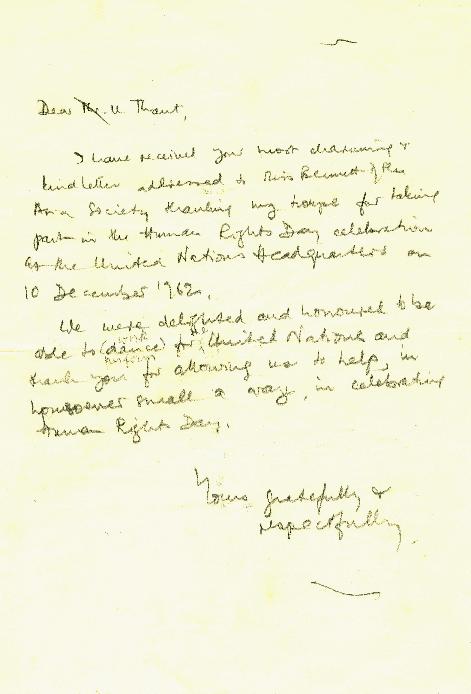 Dear Mr. U Thant,
I have received your most charming &
kind letter addressed to Miss Bennett of the
Asia Society thanking my troupe for taking
part in the Human Rights Day celebration
at the United Nations Headquarters on
10 December 1962.
We were delighted and honoured to be
work the
able to (dance) for United Nations and
perform
thank you for allowing us to help, in
howsoever small a way, in celebrating
Human Rights Day.
Yours gratefully &
respectfully